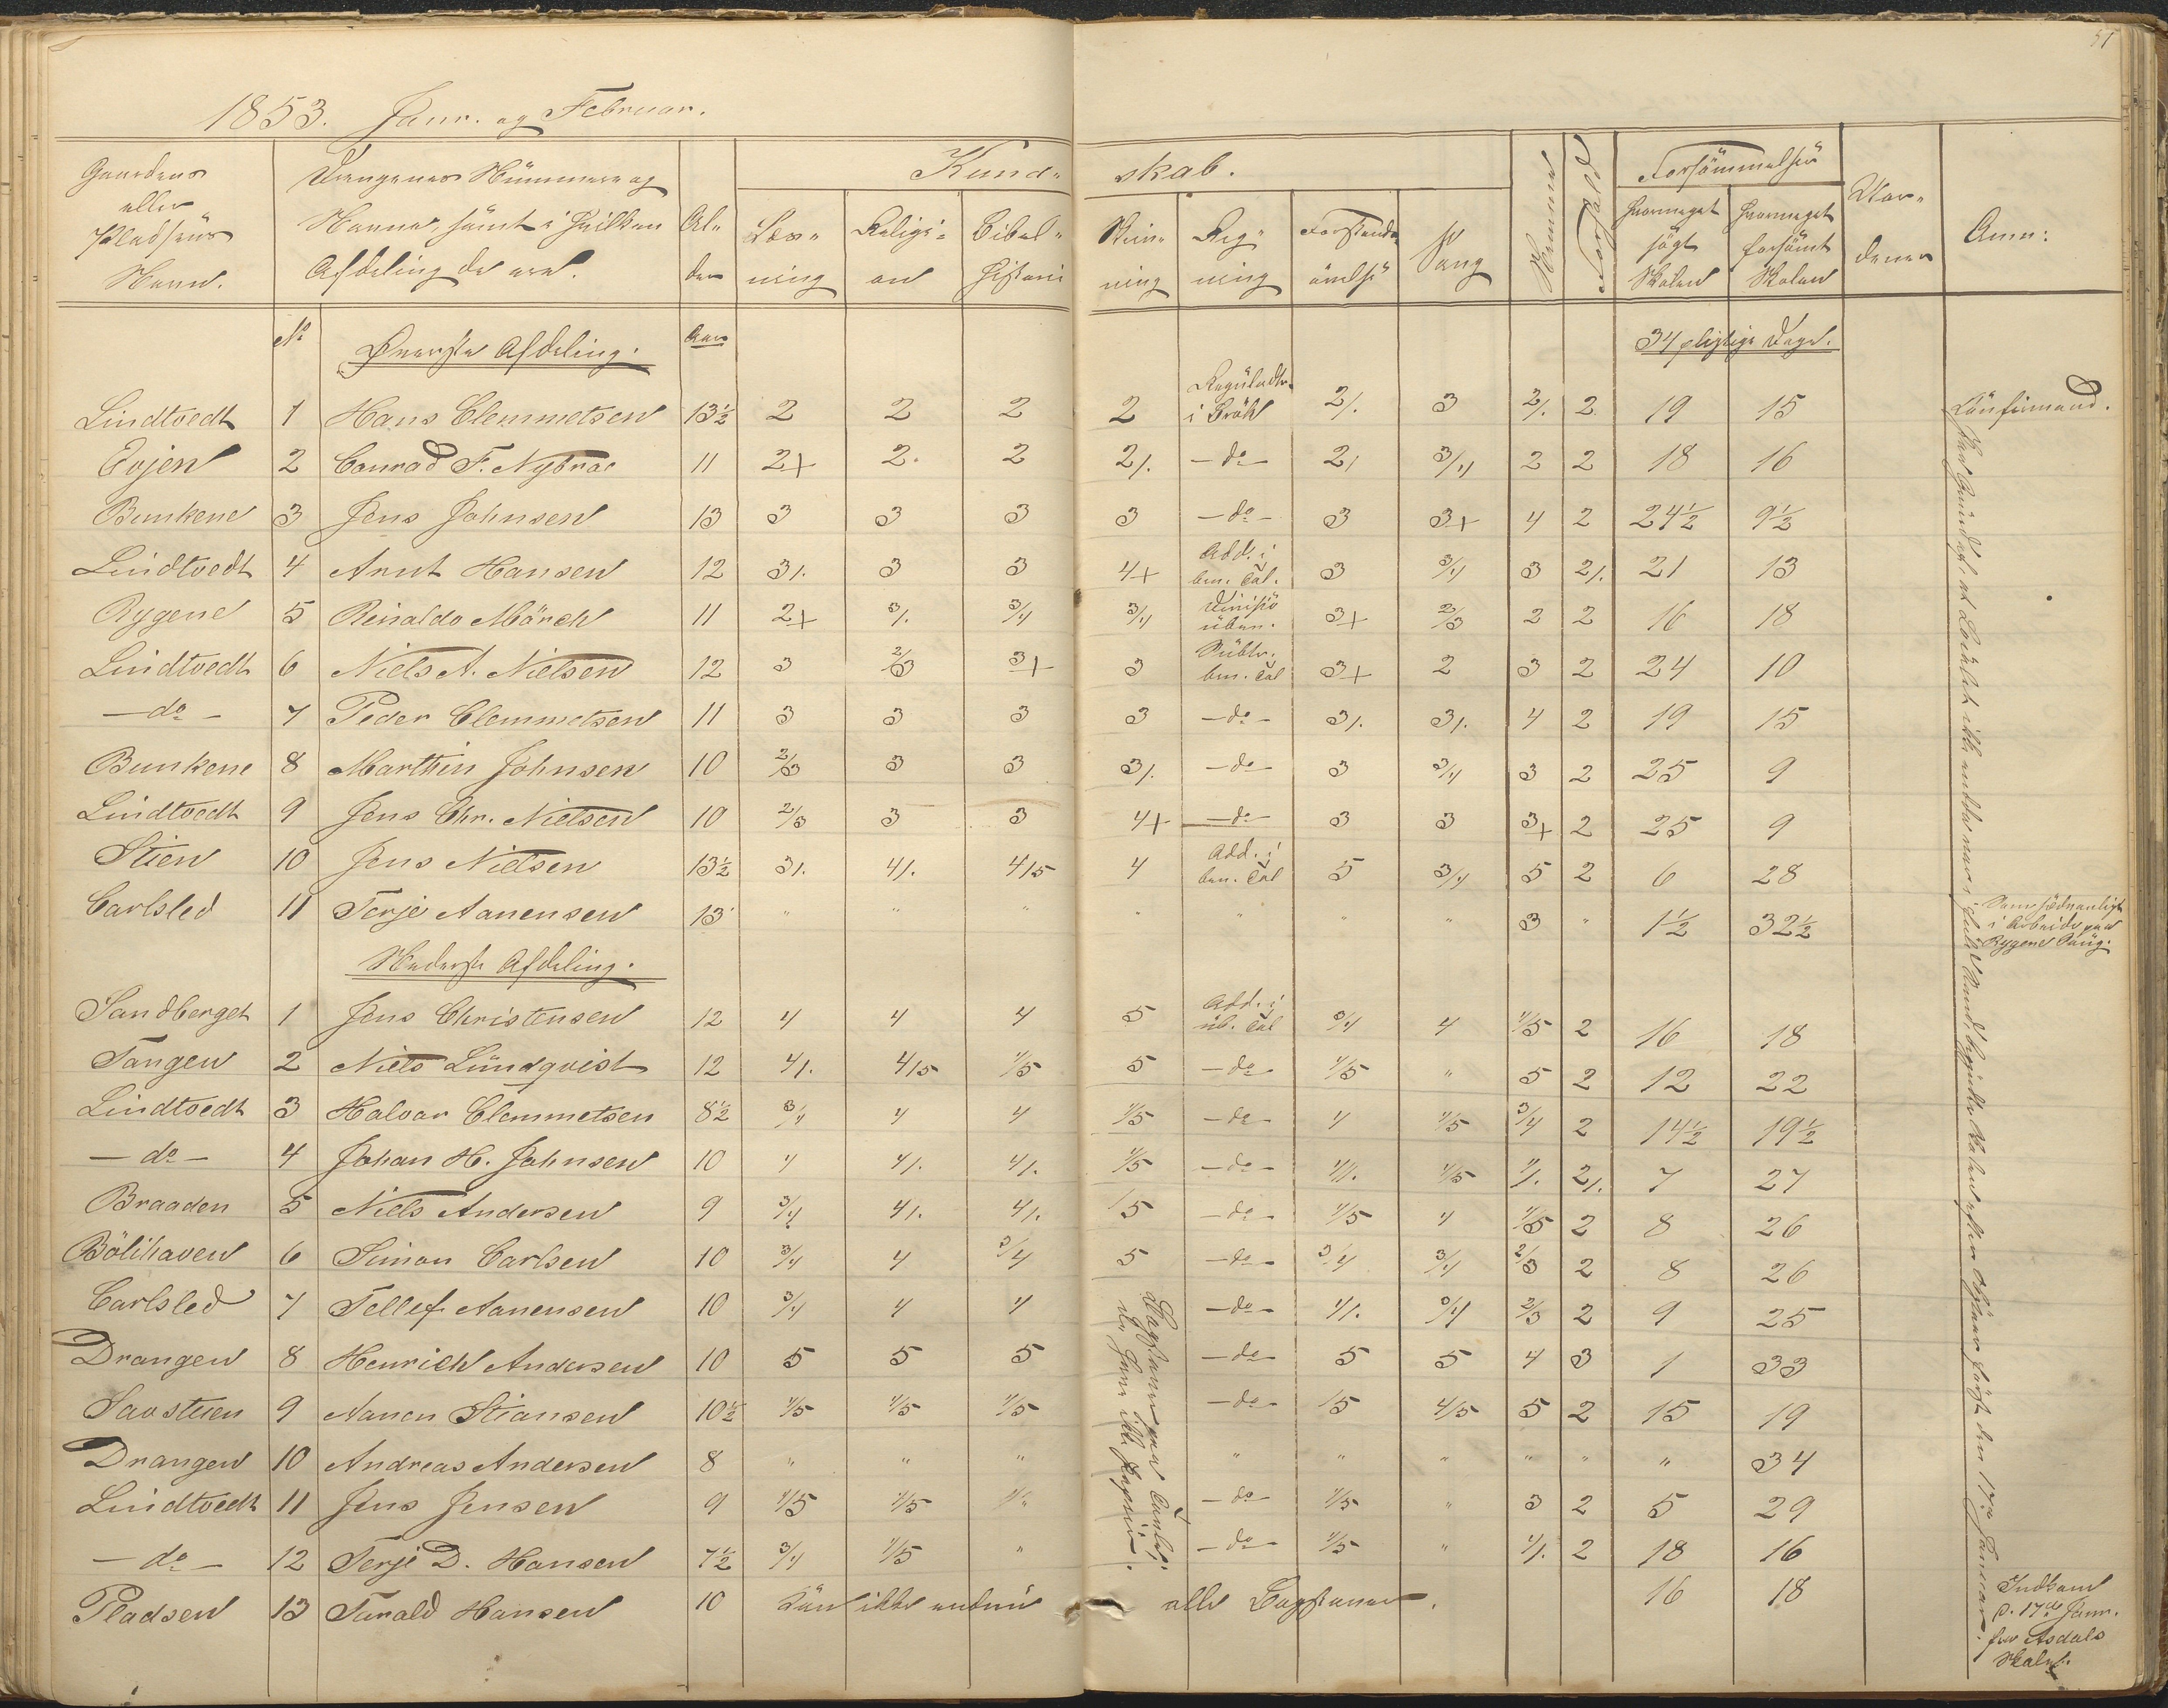 51
1853. Janr. og Februar.
Gaardens eller Pladsens Navn. | Drengenes Nummere og Navne, samt i hvilken Afdeling de ere. | Alder | Kundskab. | Nemme | Opførsel | Forsømmelser | Anm:
Læsning | Religion | Bibelhistorie | Skrivning | Regning | Sang | hvormeget søgt Skolen | hvormeget forsømt Skolen
No | Øverste Afdeling. | Aar | 34 pligtige Dage.
Lindtvedt 1 Hans Clemmetsen 13½ 2 2 2 2 Reguladtr. i Brøk 2/. 3 2/. 2 19 15 Confirmand.
Evjen 2 Conrad F. Nybroe 11 2+ 2. 2 2/. - do - 2/ 3/4 2 2 18 16
Bunkene 3 Jens Johnsen 13 3 3 3 3 - do - 3 3+ 4 2 24½ 9½
Lindtvedt 4 Arnt Hansen 12 3/. 3 3 4+ Add. i ben. Tal. 3 3/4 3 2/. 21 13
Rygene 5 Reinaldo Mörch 11 2+ 3/. 3/4 3/4 Divisio üben. 3+ 2/3 2 2 16 18
Lindtvedt 6 Niels A. Nielsen 12 3 2/3 3+ 3 Subtr. ben. Tal 3+ 2 3 2 24 10
- do - 7 Peder Clemmetsen 11 3 3 3 3 - do - 3/. 3/. 4 2 19 15
Bunkene 8 Marthin Johnsen 10 2/3 3 3 3/. - do - 3 3/4 3 2 25 9
Lindtvedt 9 Jens Chr. Nielsen 10 2/3 3 3 4+ - do - 3 3 3+ 2 25 9
Stien 10 Jens Nielsen 13½ 3/. 4/. 4/5 4 Add. i ben. Tal 5 3/4 5 2 6 28
Carlsled 11 Terje Aanensen 13 " " " " " " " 3 " 1½ 32½ Som sædvanligt i Arbeide paa Rygene Saug.
Nederste Afdeling.
Sandberget 1 Jens Christensen 12 4 4 4 5 Add. i üb. Tal 3/4 4 4/5 2 16 18
Tangen 2 Niels Lündqvist 12 4/. 4/5 4/5 5 - do - 4/5 " 5 2 12 22
Lindtvedt 3 Halvor Clemmetsen 8½ 3/4 4 4 4/5 - do - 4 4/5 3/4 2 14½ 19½
- do - 4 Johan H. Johnsen 10 4 4/. 4/. 4/5 - do - 4/. 4/5 4/. 2/. 7 27
Braaden 5 Niels Andersen 9 3/4 4/. 4/. /5 - do - 4/5 4 4/5 2 8 26
Bölihaven 6 Simon Carlsen 10 3/4 4 3/4 5 - do - 3/4 3/4 2/3 2 8 26
Carlsled 7 Tellef Aanensen 10 3/4 4 4 - do - 4/. 3/4 2/3 2 9 25
Drangen 8 Henrich Andersen 10 5 5 5 - do - 5 5 4 3 1 33
Savstuen 9 Aanen Stiansen 10½ 4/5 4/5 4/5 - do - /5 4/5 5 2 15 19
Drangen 10 Andreas Andersen 8 " " " " " " " " " 34
Lindtvedt 11 Jens Jensen 9 4/5 4/5 - do - 4/5 " 3 2 5 29
- do - 12 Terje D. Hansen 7½ 3/4 4/5 " - do - 4/5 " 4/. 2 18 16
Pladsen 13 Tarald Hansen 10 Kan ikke endnu alle Bogstaver. 16 18 Indkom d. 17de Janr. fra Asdals Skole.